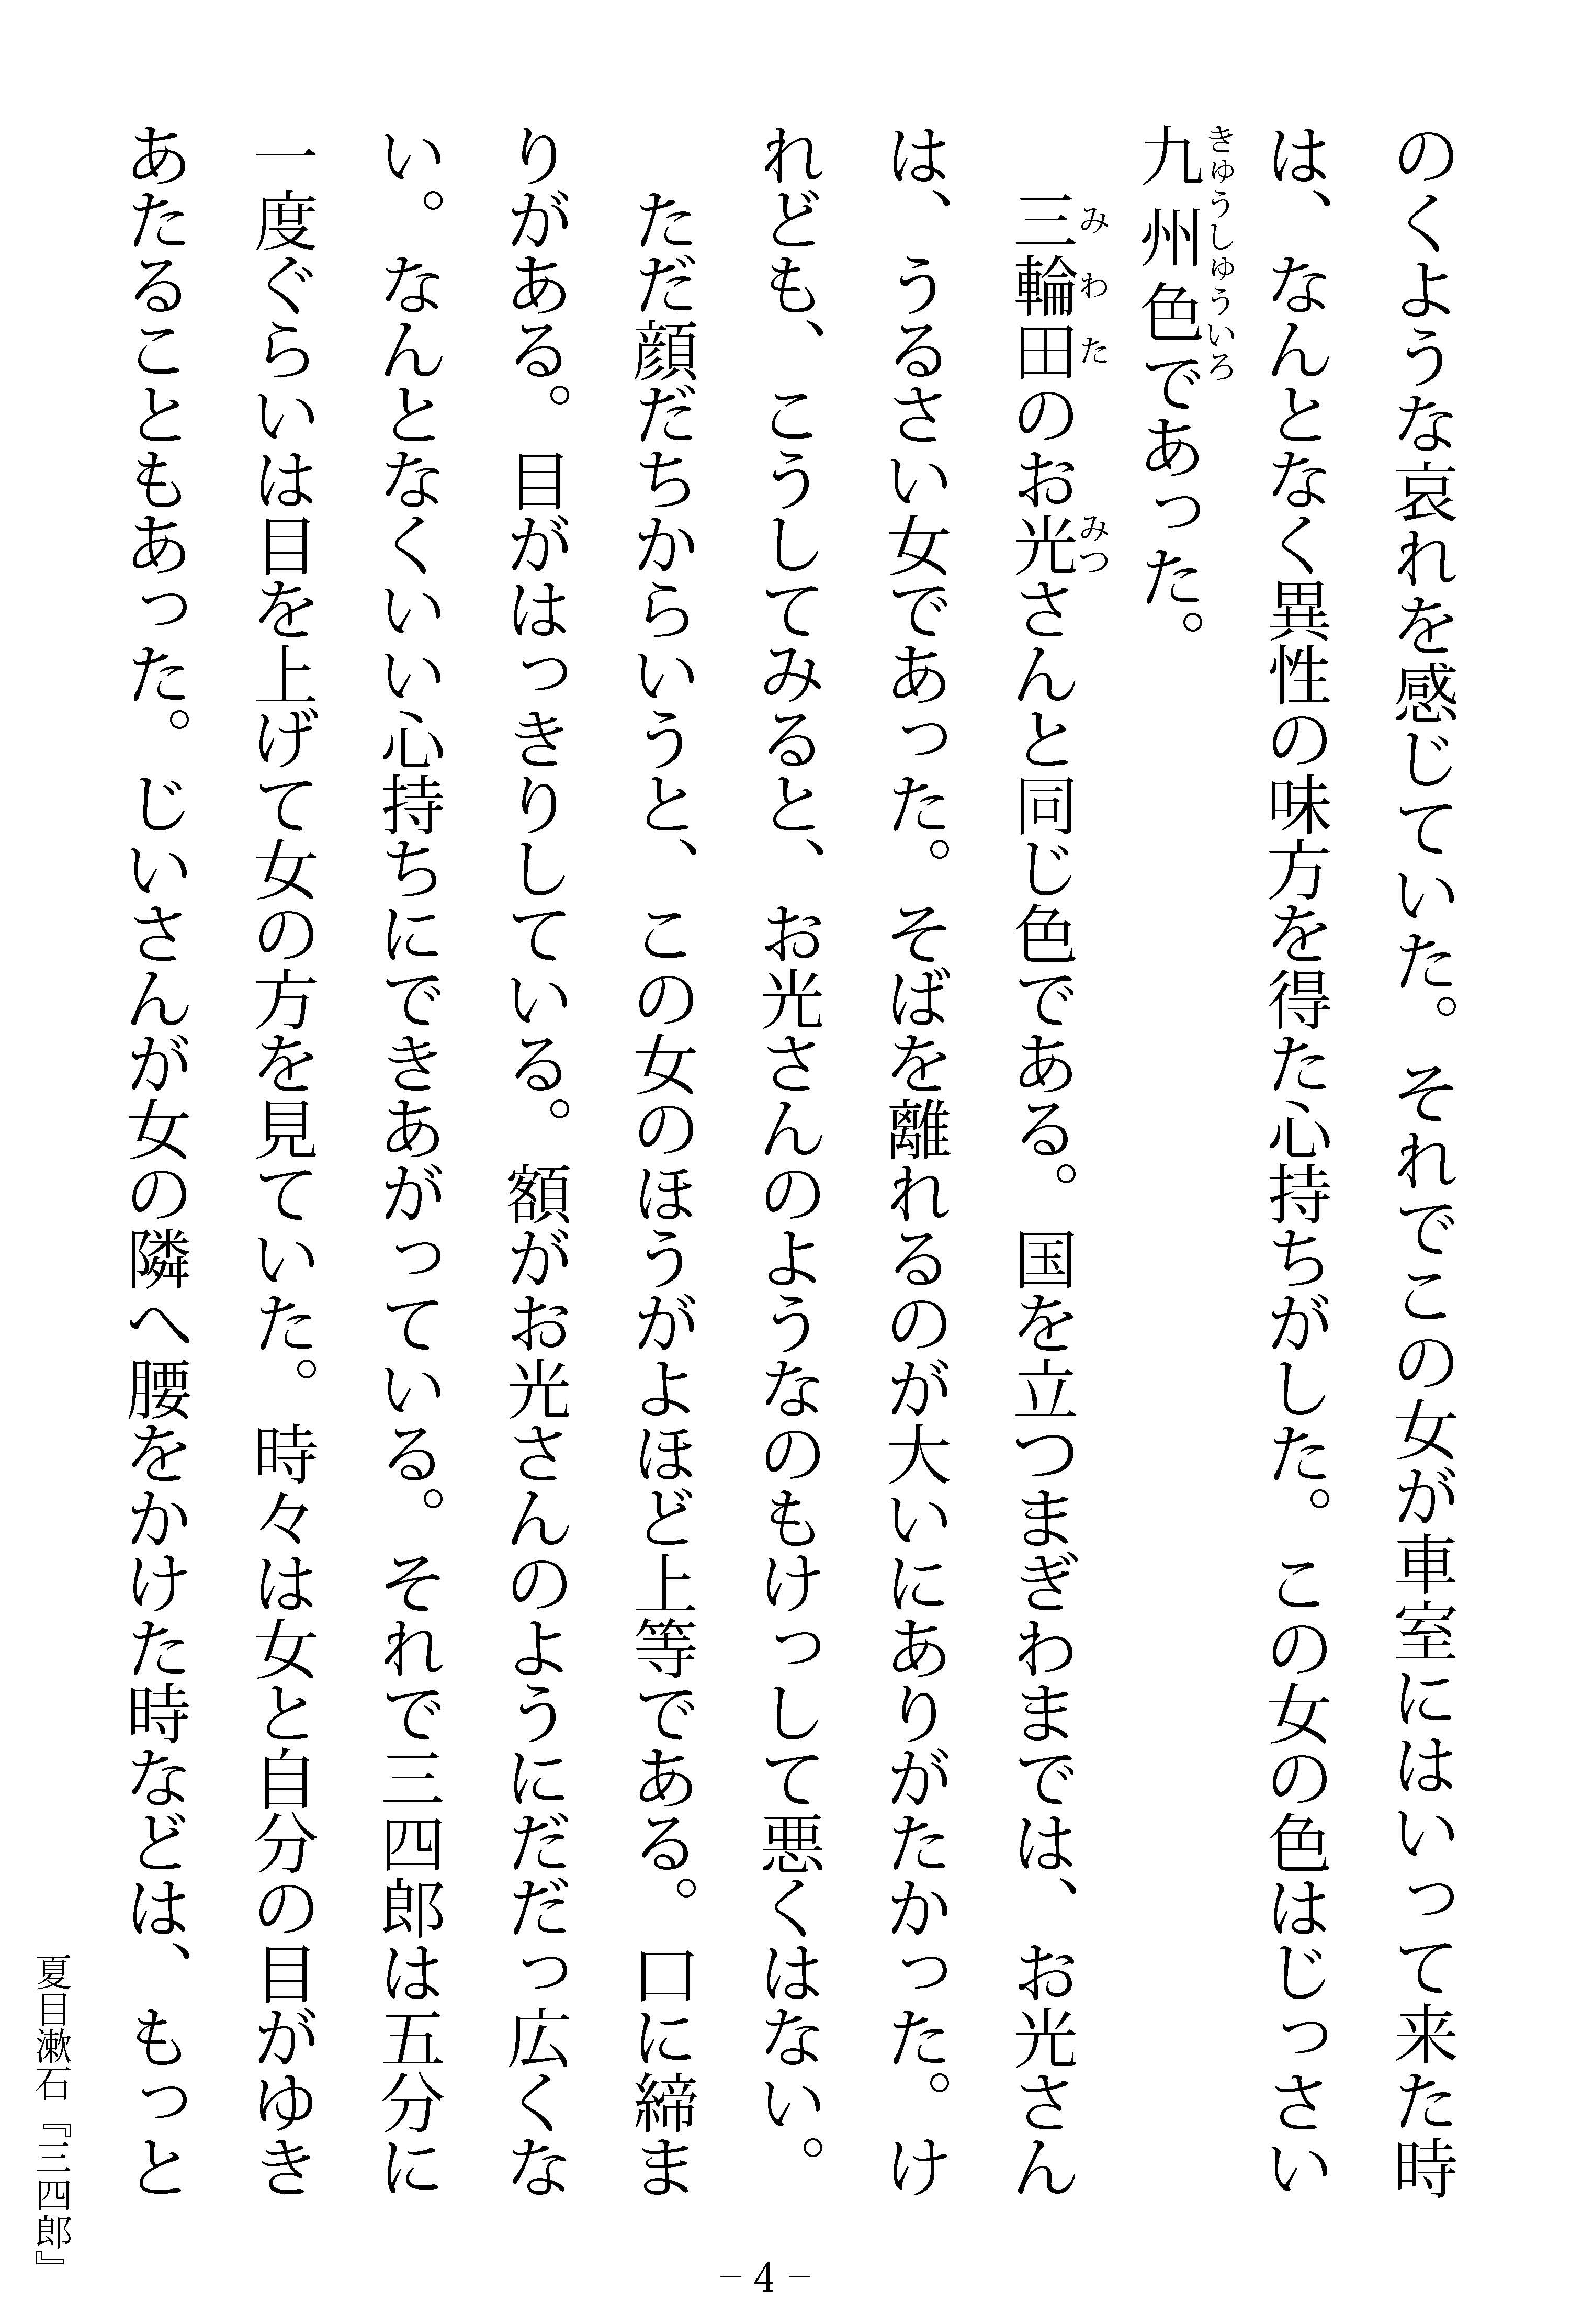 のくような哀れを感じていた。それでこの女が車室にはいって来た時
は、なんとなく異性の味方を得た心持ちがした。この女の色はじっさい
九州色であった。
きゅうしゅういろ
三輪田のお光さんと同じ色である。国を立つまぎわまでは、お光さん
みわた
みつ
は、うるさい女であった。そばを離れるのが大いにありがたかった。け
れども、こうしてみると、お光さんのようなのもけっして悪くはない。
ただ顔だちからいうと、この女のほうがよほど上等である。口に締ま
りがある。目がはっきりしている。額がお光さんのようにだだっ広くな
い。なんとなくいい心持ちにできあがっている。それで三四郎は五分に
一度ぐらいは目を上げて女の方を見ていた。時々は女と自分の目がゆき
あたることもあった。じいさんが女の隣へ腰をかけた時などは、もっと
夏目漱石『三四郎』
– 4 –